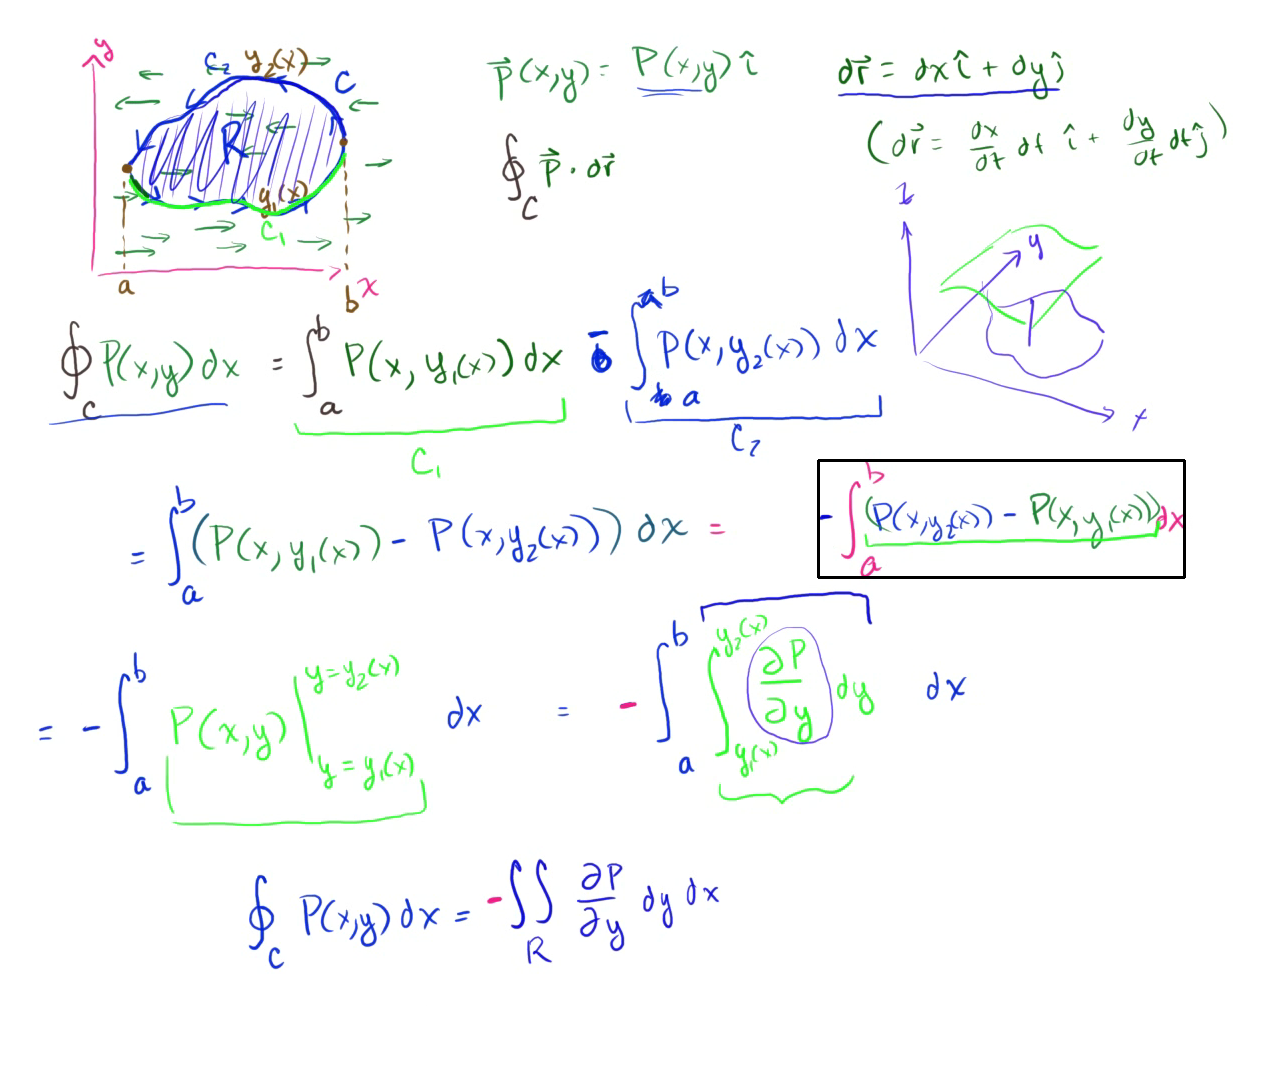 y
C₂ y₂(x)
C
R
y₁(x)
C₁
a
b x
P⃗(x,y) = P(x,y) î
dr⃗ = dx î + dy ĵ
(dr⃗ = dx/dt dt î + dy/dt dt ĵ)
∮_C P⃗ · dr⃗
z
y
x
∮_C P(x,y) dx = ∫_a^b P(x, y₁(x)) dx - ∫_a^b P(x, y₂(x)) dx
C₁
C₂
= ∫_a^b (P(x, y₁(x)) - P(x, y₂(x))) dx = - ∫_a^b (P(x,y₂(x)) - P(x, y₁(x))) dx
= - ∫_a^b P(x,y) |_{y = y₁(x)}^{y = y₂(x)} dx = - ∫_a^b ∫_{y₁(x)}^{y₂(x)} ∂P/∂y dy dx
∮_C P(x,y) dx = - ∬_R ∂P/∂y dy dx